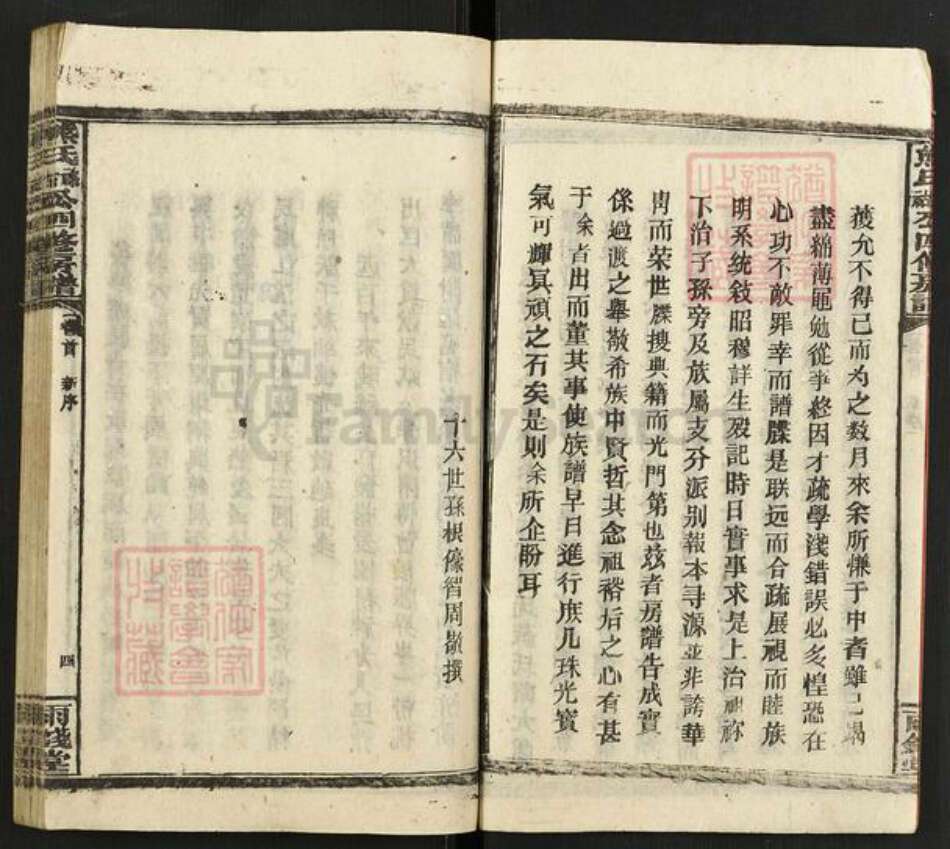 蒦允不得已而为之数月來余所慊于中者雖已竭
盡綿薄黽勉從事終因才疏学淺錯誤必多惶恐在
心功不敵罪幸而譜牒是联远而合疏展視而睦族
明系统敍昭穆詳生殁記時日實事求是上治祖祢
下治子孫旁及族属支分派别報本寻源並非誇華
胄而荣世牒搜典籍而光門第也兹者房譜告成實
係過渡之舉敬希族中賢哲其念祖裕后之心有甚
于余者出而董其事使族譜早日進行庶几珠光寳
氣可輝冥頑之石矣是則余所企盼耳
十六世孫根像智周敬撰
熊氏 公四修房譜
卷首 新序
四
雨錢堂
FamilySearch